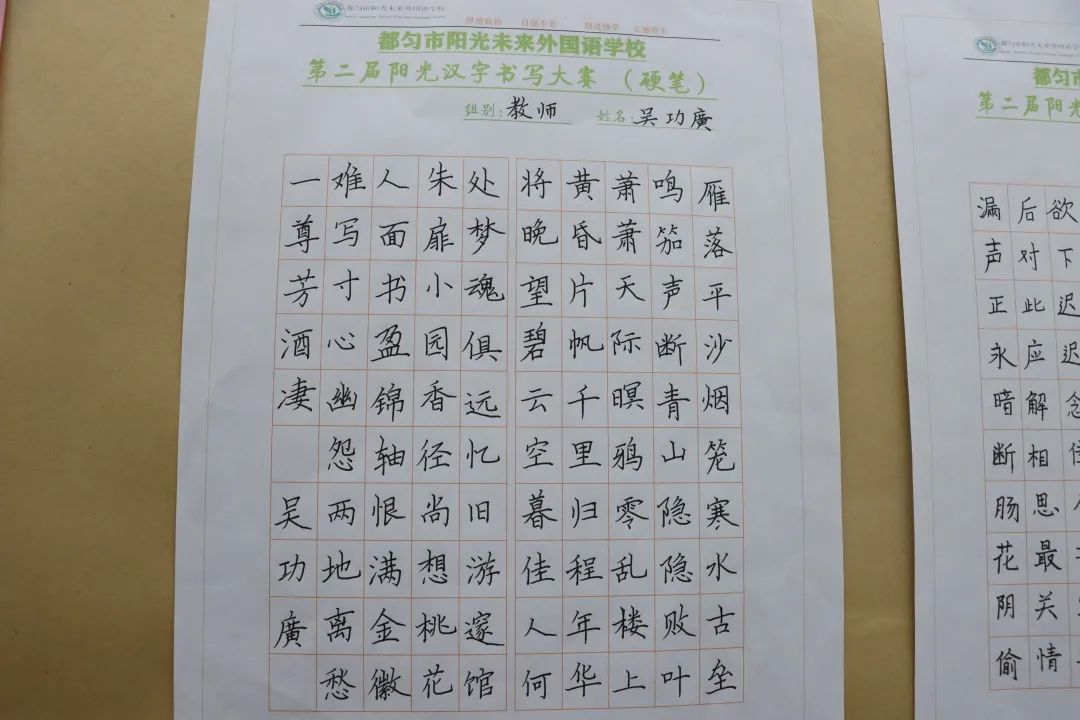 都匀市阳光未来外国语学校
厚德载物 自强不息
都匀市阳光未来外国语学校
第二届阳光汉字书写大赛 （硬笔）
组别：教师 姓名：吴功廣
雁落平沙烟笼寒水古垒
鸣笳声断青山隐隐败叶
萧萧天际暝鸦零乱楼上
黄昏片帆千里归程年华
将晚望碧云空暮佳人何
处梦魂俱远忆旧游邃馆
朱扉小园香径尚想桃花
人面书盈锦轴恨满金徽
难写寸心幽怨两地离愁
一尊芳酒凄 吴功廣
都匀市
第二届阳光
欲下迟迟念
后对此应解相思最关情
漏声正永暗断肠花阴偷